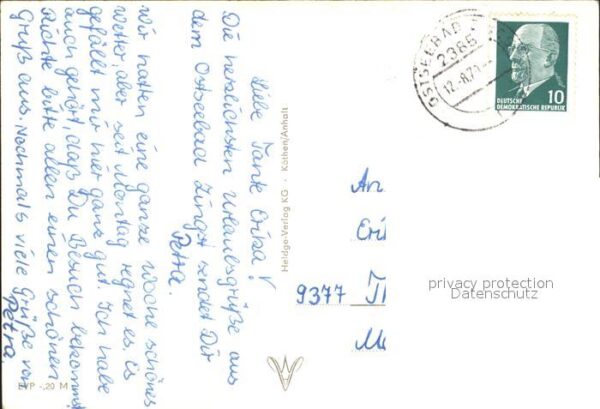 Liebe Tante Erika!
Die herzlichsten Urlaubsgrüße aus
dem Ostseebad Zingst sendet Dir
Petra.
Wir hatten eine ganze Woche schönes
Wetter, aber seit Montag regnet es. Es
gefällt mir hier ganz gut. Ich habe
auch gehört, daß Du Besuch bekommst
Richte bitte allen einen schönen
Gruß aus. Nochmals viele Grüße von
Petra
EVP -,20 M
Heldge-Verlag KG · Köthen/Anhalt
OSTSEEBAD
2385
12.-8.71
10
DEUTSCHE
DEMOKRATISCHE REPUBLIK
An
Eri
9377
privacy protection
Datenschutz